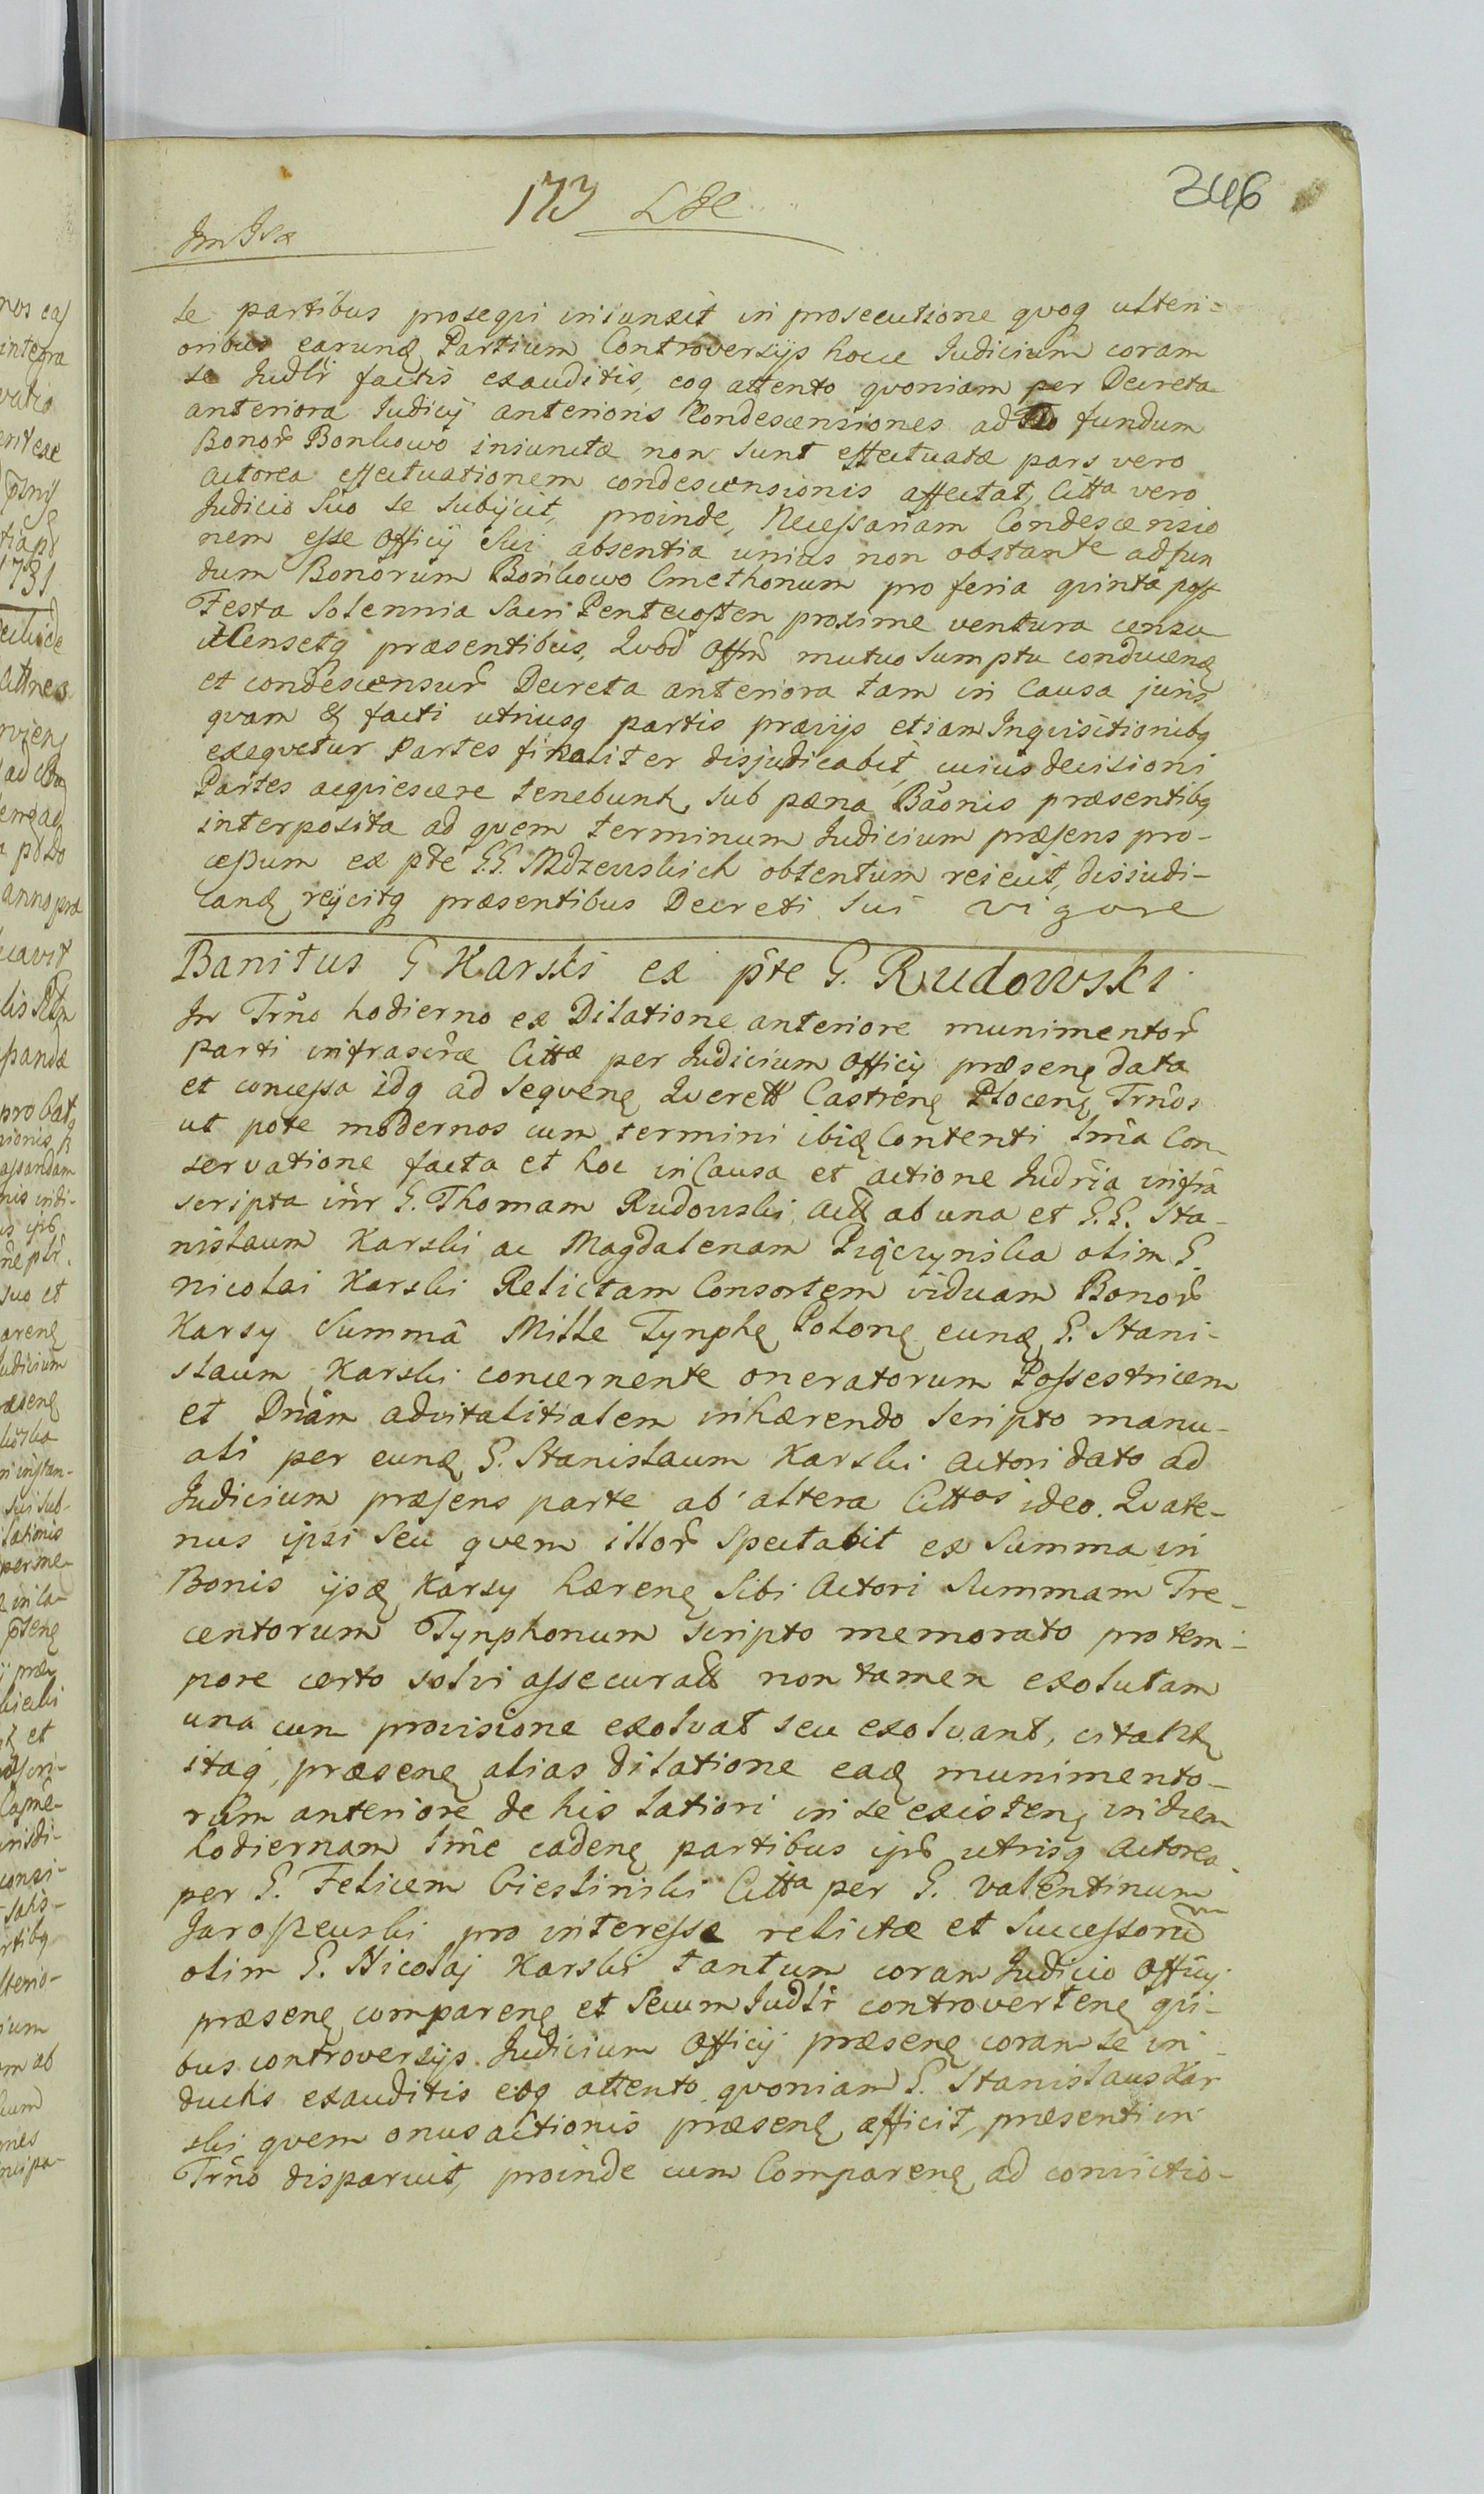 346
173
se partibus prosequi iniunxit in prosecutione quoq ulteri-
oribus earunq Partium Controversijs hocce Iudicium coram
se Iudlr factis exauditis, eoq attento quoniam per Decreta
anteriora Iudicij anterioris Condescensiones ad fundum
Bonor Bonkowo iniunctæ non sunt effectuatæ pars vero
actorea effectuationem condescensionis affectat, Citta vero
Iudicio Suo se subijcit, proinde, Necessariam Condescensio
nem esse Officij Sui absentia unius non obstante ad fun
dum Bonorum Bońkowo Cmethonum pro feria quinta post
Festa Solennia Sacri Pentecosten proxime ventura censu
it Censetq præsentibus, Quod Offm mutuo sumptu conducenq
et condescensur Decreta anteriora tam in Causa juris
quam & facti utriusq partis prævijs etiam Inquisitionibq
exequetur Partes finaliter disjudicabit, cuius decisioni
Partes acquiescere tenebunt, sub pæna Bãonis præsentibq
interposita ad quem terminum Iudicium præsens pro-
cessum ex pte G.G. Mdzewskich obtentum reiecit, disiudi-
canq reijcitq præsentibus Decreti sui vigore
Banitus G Karski ex pte G. Rudowski
In Trno hodierno ex Dilatione anteriore munimentor
parti infrascræ Cittæ per Iudicium Officij præsenq data
et concessa idq ad sequenq Querell Castrenq Plocenq Trnos
ut pote modernos cum termini ibiq Contenti lma Con-
servatione facta et hoc in Causa et actione Iudria infra
scripta inr G. Thomam Rudowski Act ab una et G.G. Sta-
nislaum Karski ac Magdalenam Pigczynska olim G.
Nicolai Karski Relictam Consortem viduam Bonor
Karsy Summâ Mille Tynphq Polonq eunq G. Stani-
slaum Karski concernente oneratorum Possestricem
et Dnam advitalitialem inhærendo scripto manu-
ali per eunq G. Stanislaum Karski Actori dato ad
Iudicium præsens parte ab altera Cittos ideo. Quate-
nus ipsi seu quem illor spectabit ex Summa in
Bonis ijsq Karsy hærenq sibi Actori Summam Tre-
centorum Tynphonum scripto memorato pro tem-
pore certo solvi assecurat non tamen exolutam
una cum provisione exolvat seu exolvant, citat
itaq, præsenq alias dilatione eaq munimento-
rum anteriore de his latiori in se existenq in diem
hodiernam lme cadenq partibus ips utrisq Actorea
per G. Felicem Cieslinski Citta per G. Valentinum
Jaroszewski pro interesse relictæ et Successorum
olim G. Nicolaj Karski tantum coram Iudicio Officij
præsenq comparenq et Secum Iudlr controvertenq qui-
bus controversijs Iudicium Officij præsenq coram se in-
ductis exauditis eoq attento quoniam G. Stanislaus Kar
ski quem onus actionis præsenq afficit, præsenti in
Trno disparuit, proinde eum Comparenq ad convictio-